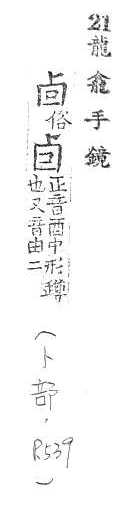 21龍龕手鏡
卣俗卣正音酉中形罇
也又音由二
(卜部,P.539)